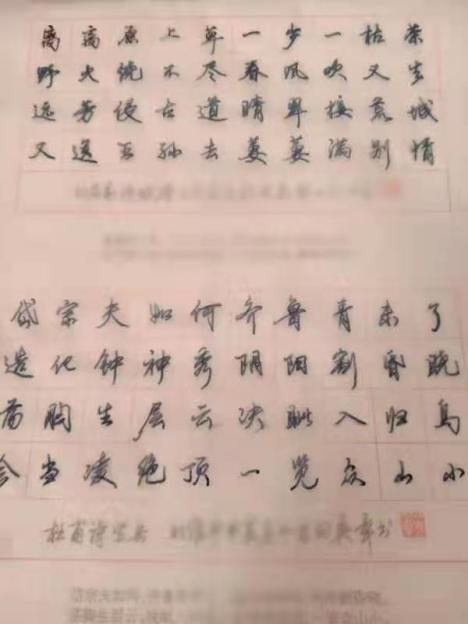 离离原上草一岁一枯荣
野火烧不尽春风吹又生
远芳侵古道晴翠接荒城
又送王孙去萋萋满别情
岱宗夫如何齐鲁青未了
造化钟神秀阴阳割昏晓
荡胸生层云决眦入归鸟
会当凌绝顶一览众山小
杜甫诗望岳